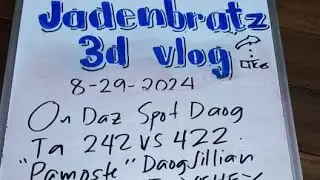 Jadenbratz
3d vlog
8-29-2024
On Daz Spot Daog
Ta 242 vs 422.
"Pamoste" Daog Jillian